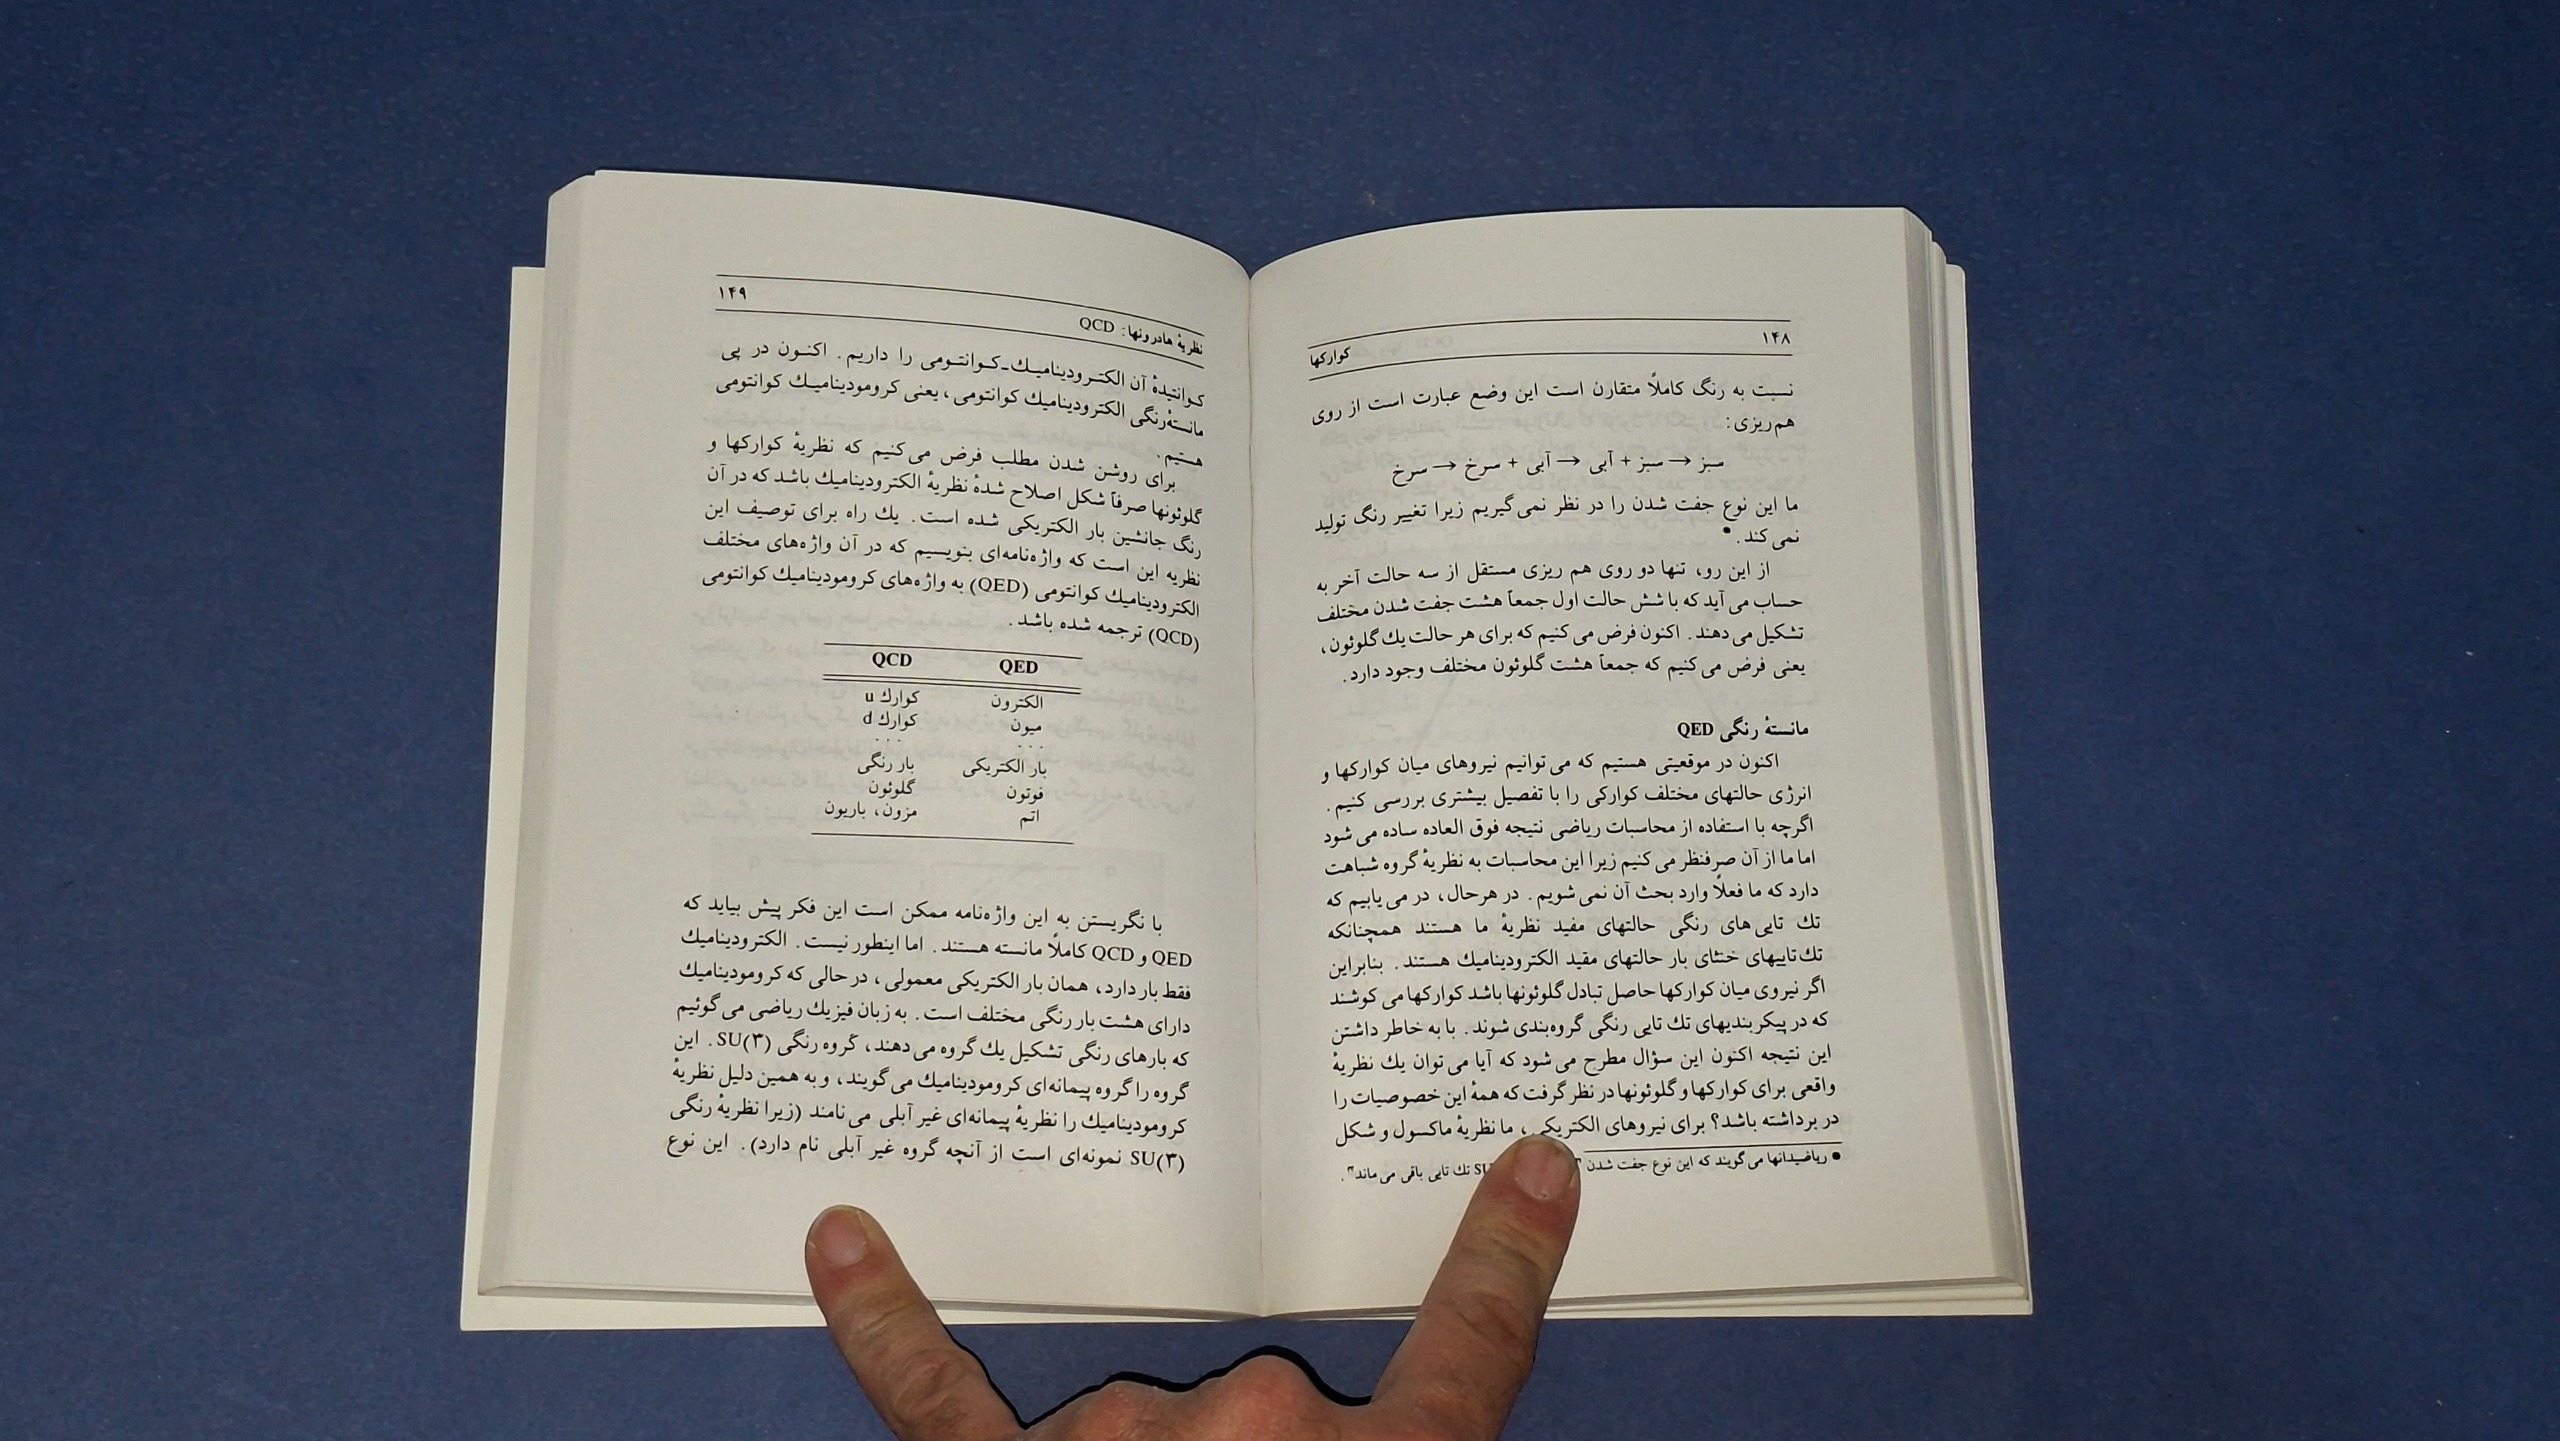 ۱۴۸
کوارکها
نسبت به رنگ کاملاً متقارن است این وضع عبارت است از روی
هم‌ریزی:
سبز → سبز + آبی → آبی + سرخ → سرخ
ما این نوع جفت شدن را در نظر نمی‌گیریم زیرا تغییر رنگ تولید
نمی‌کند.•
از این رو، تنها دو روی هم ریزی مستقل از سه حالت آخر به
حساب می‌آید که با شش حالت اول جمعاً هشت جفت شدن مختلف
تشکیل می‌دهند. اکنون فرض می‌کنیم که برای هر حالت یك گلوئون،
یعنی فرض می‌کنیم که جمعاً هشت گلوئون مختلف وجود دارد.
مانستهٔ رنگی QED
اکنون در موقعیتی هستیم که می‌توانیم نیروهای میان کوارکها و
انرژی حالتهای مختلف کوارکی را با تفصیل بیشتری بررسی کنیم.
اگرچه با استفاده از محاسبات ریاضی نتیجه فوق العاده ساده می‌شود
اما ما از آن صرفنظر می‌کنیم زیرا این محاسبات به نظریهٔ گروه شباهت
دارد که ما فعلاً وارد بحث آن نمی‌شویم. در هرحال، در می‌یابیم که
تك تایی‌های رنگی حالتهای مفید نظریهٔ ما هستند همچنانکه
تك‌تاییهای خنثای بار حالتهای مقید الکترودینامیك هستند. بنابراین
اگر نیروی میان کوارکها حاصل تبادل گلوئونها باشد کوارکها می‌کوشند
که در پیکربندیهای تك تایی رنگی گروه‌بندی شوند. با به خاطر داشتن
این نتیجه اکنون این سؤال مطرح می‌شود که آیا می‌توان یك نظریهٔ
واقعی برای کوارکها و گلوئونها در نظر گرفت که همهٔ این خصوصیات را
در برداشته باشد؟ برای نیروهای الکتریکی، ما نظریهٔ ماکسول و شکل
• ریاضیدانها می‌گویند که این نوع جفت شدن تك تایی باقی می‌ماند".
۱۴۹
نظریهٔ هادرونها: QCD
کوانتیدهٔ آن الکترودینامیك-کوانتومی را داریم. اکنون در پی
مانستهٔ‌رنگی الکترودینامیك کوانتومی، یعنی کرومودینامیك کوانتومی
هستیم.
برای روشن شدن مطلب فرض می‌کنیم که نظریهٔ کوارکها و
گلوئونها صرفاً شکل اصلاح شدهٔ نظریهٔ الکترودینامیك باشد که در آن
رنگ جانشین بار الکتریکی شده است. یك راه برای توصیف این
نظریه این است که واژه‌نامه‌ای بنویسیم که در آن واژه‌های مختلف
الکترودینامیك کوانتومی (QED) به واژه‌های کرومودینامیك کوانتومی
(QCD) ترجمه شده باشد.
QED QCD
الکترون کوارك u
میون کوارك d
... ...
بار الکتریکی بار رنگی
فوتون گلوئون
اتم مزون، باریون
با نگریستن به این واژه‌نامه ممکن است این فکر پیش بیاید که
QED و QCD کاملاً مانسته هستند. اما اینطور نیست. الکترودینامیك
فقط بار دارد، همان بار الکتریکی معمولی، در حالی که کرومودینامیك
دارای هشت بار رنگی مختلف است. به زبان فیزیك ریاضی می‌گوئیم
که بارهای رنگی تشکیل یك گروه می‌دهند، گروه رنگی SU(۳). این
گروه را گروه پیمانه‌ای کرومودینامیك می‌گویند، و به همین دلیل نظریهٔ
کرومودینامیك را نظریهٔ پیمانه‌ای غیر آبلی می‌نامند (زیرا نظریهٔ رنگی
SU(۳) نمونه‌ای است از آنچه گروه غیر آبلی نام دارد). این نوع